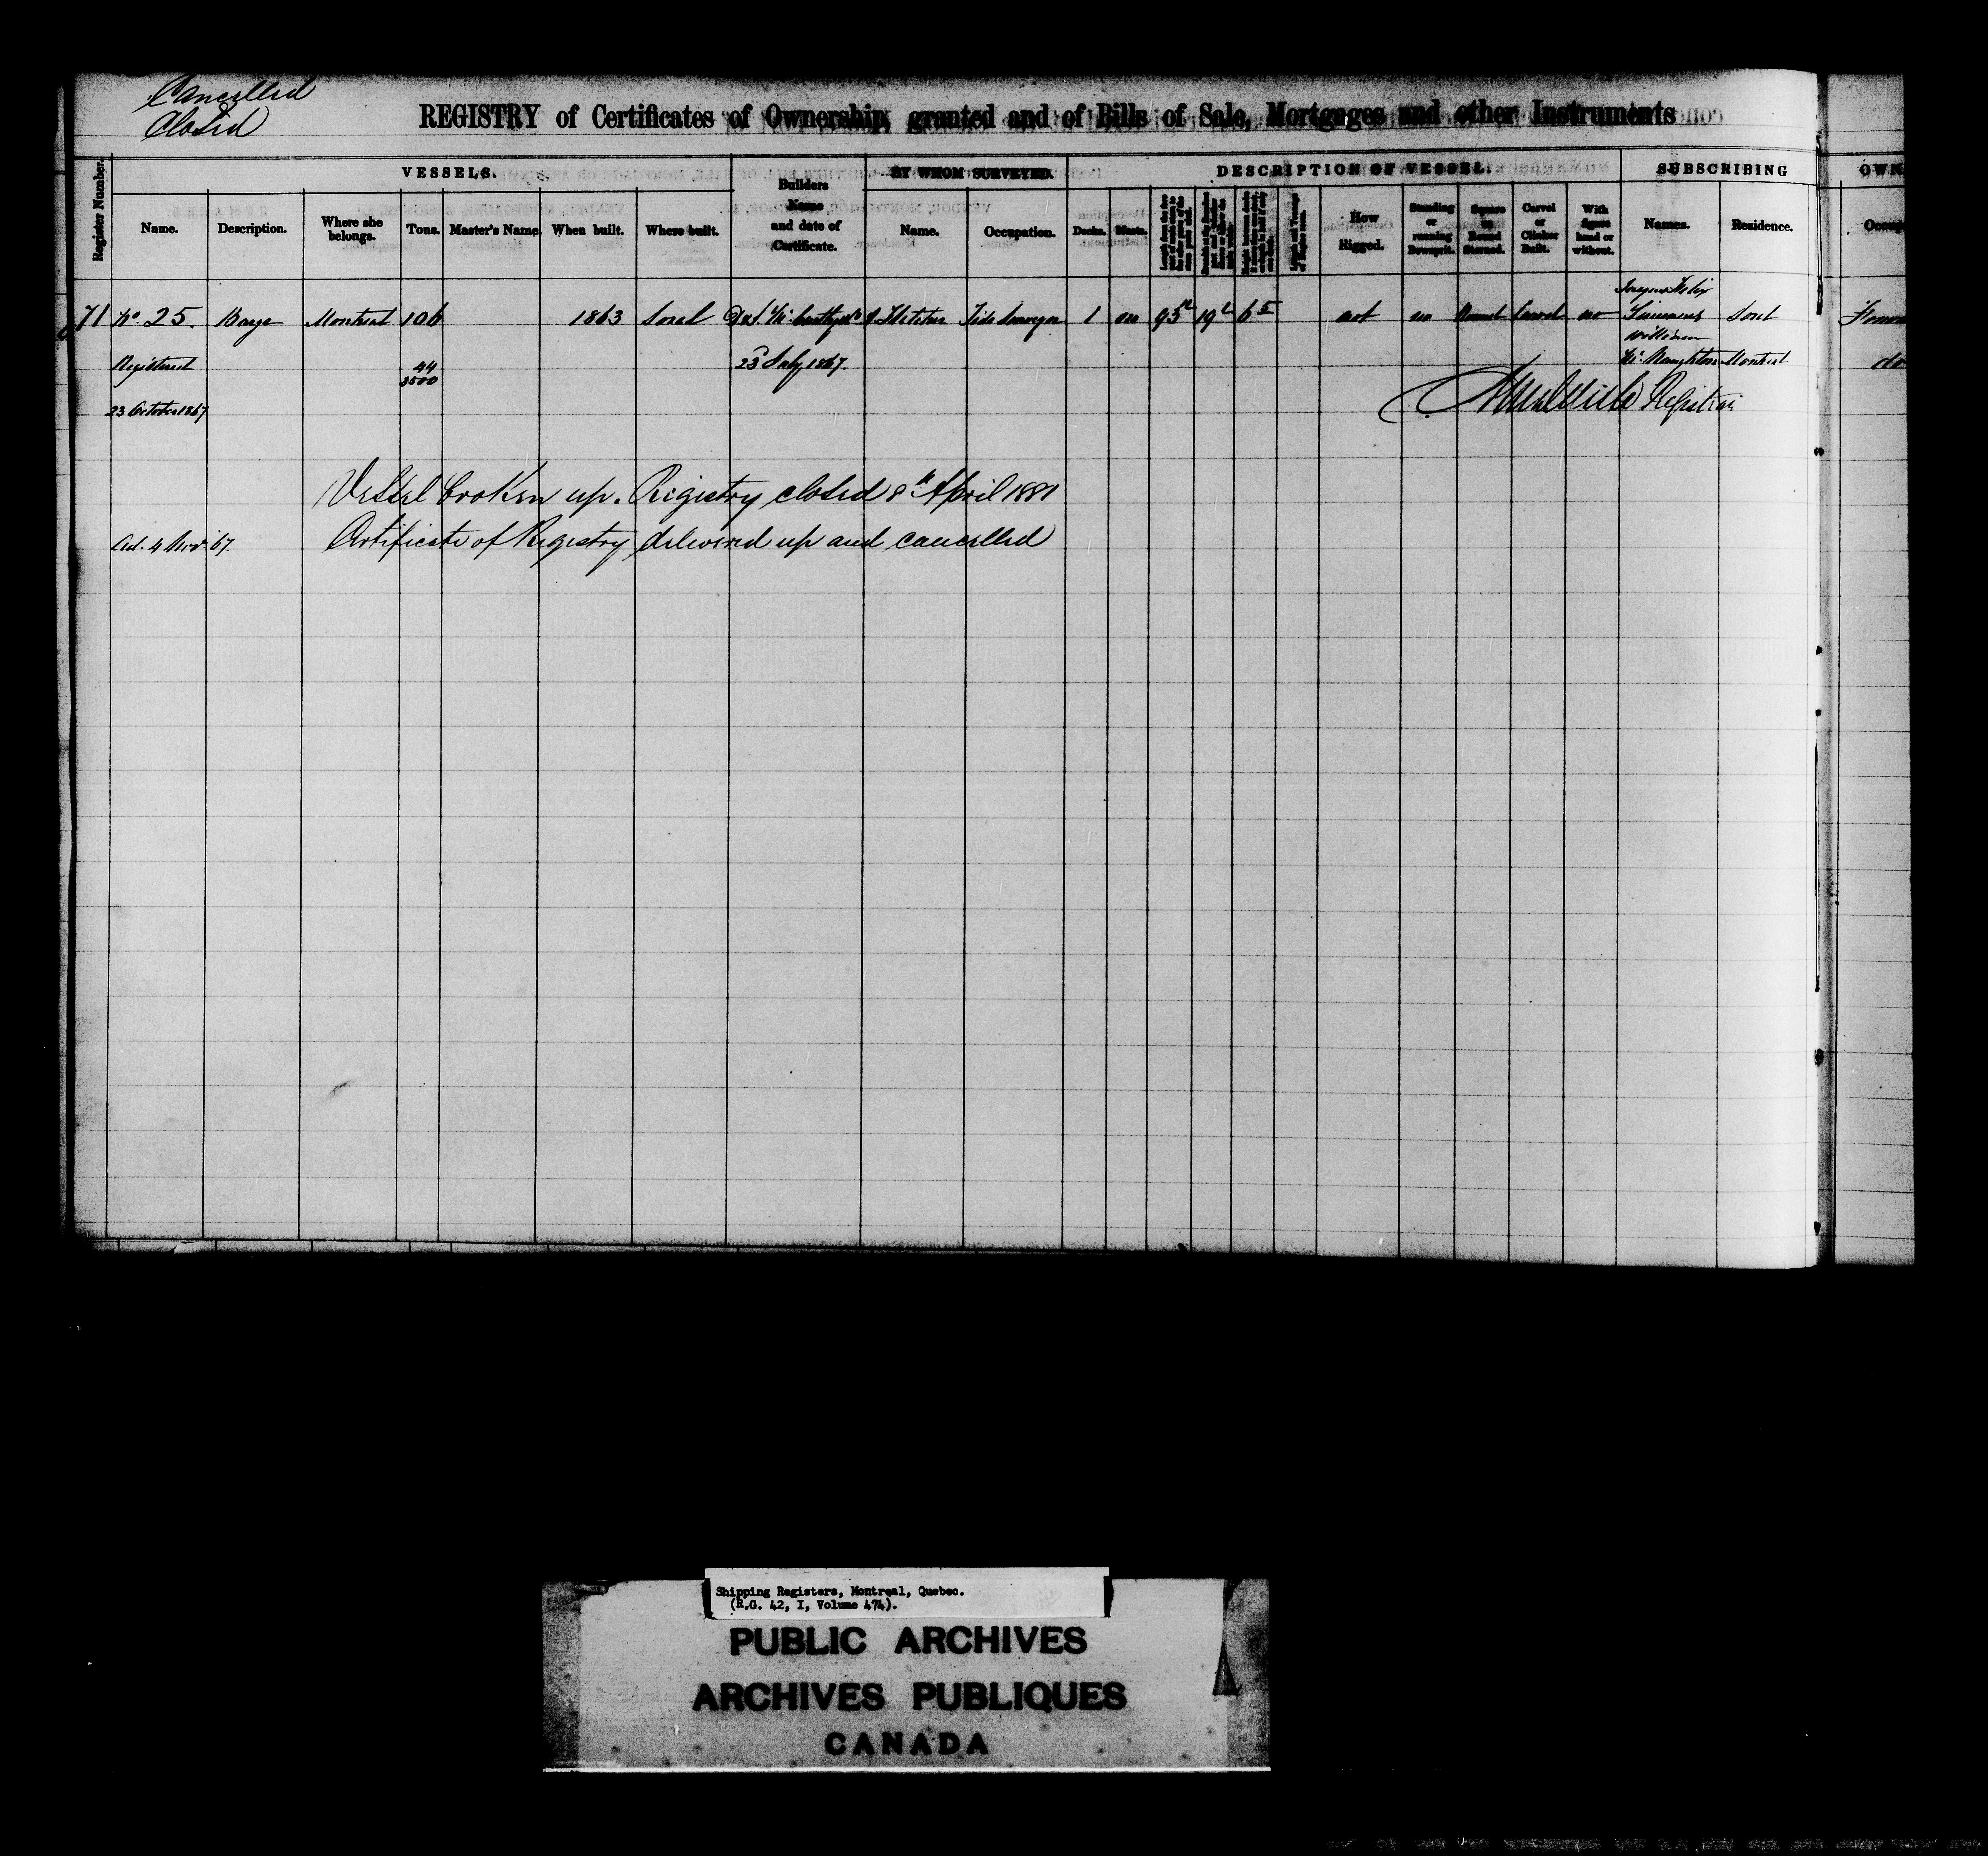 Cancelled
Closed
REGISTRY of Certificates of Ownership, granted and of Bills of Sale, Mortgages and other Instruments
Register Number.
VESSELS.
Builders Name and date of Certificate.
BY WHOM SURVEYED.
DESCRIPTION OF VESSEL.
SUBSCRIBING
OWN
Name. Description. Where she belongs. Tons. Master's Name. When built. Where built. Name. Occupation. Decks. Masts. How Rigged. Standing or running Bowsprit. Square or Round Sterned. Carvel or Clinker Built. With figure head or without. Names. Residence. Occup
71 No. 25. Barge Montreal 106 1863 Sorel Tide Surveyor 1 no 93 19 6 not no Round Carvel no Felix Sorel
William
Registered 44 23d July 1867. McNaughton Montreal do
3500
23 October 1867 Registrar
Vessel broken up. Registry closed 8th April 1881
Certificate of Registry delivered up and cancelled
4 Nov. 67.
Shipping Registers, Montreal, Quebec.
(R.G. 42, I, Volume 474).
PUBLIC ARCHIVES
ARCHIVES PUBLIQUES
CANADA